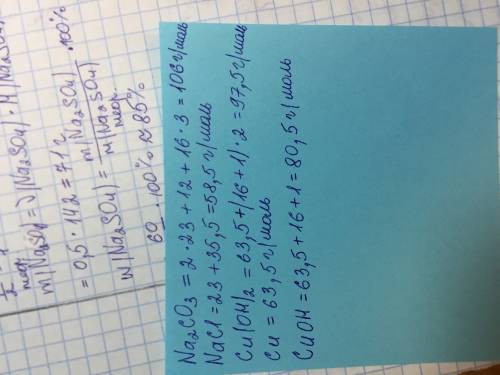 m(Na₂SO₄) = ν(Na₂SO₄) · M(Na₂SO₄)
теор.
= 0,5 · 142 = 71 г
W(Na₂SO₄) = m(Na₂SO₄) / m(Na₂SO₄) · 100%
теор.
60 · 100% ≈ 85%
Na₂CO₃ = 2·23 + 12 + 16·3 = 106 г/моль
NaCl = 23 + 35,5 = 58,5 г/моль
Cu(OH)₂ = 63,5 + (16 + 1)·2 = 97,5 г/моль
Cu = 63,5 г/моль
CuOH = 63,5 + 16 + 1 = 80,5 г/моль